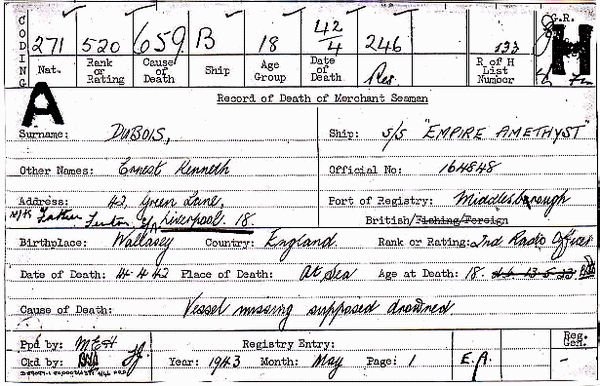 CODING
271 520 659 B 18 42/4 246 133 G.R. H
Nat. Rank or Rating Cause of Death Ship Age Group Date of Death Res. R of H List Number
A
Record of Death of Merchant Seaman
Surname: DuBOIS, Ship: S/S "EMPIRE AMETHYST"
Other Names: Ernest Kenneth Official No: 164848
Address: 42, Green Lane, Port of Registry: Middlesborough
N/K Father Liverpool. 18. British/Fishing/Foreign
Birthplace: Wallasey Country: England Rank or Rating: 2nd Radio Officer
Date of Death: 4-4-42 Place of Death: At Sea Age at Death: 18.
Cause of Death: Vessel missing supposed drowned
Ppd by: Registry Entry: Reg. Gen.
Ckd by: Year: 1943 Month: May Page: 1 E.A. -